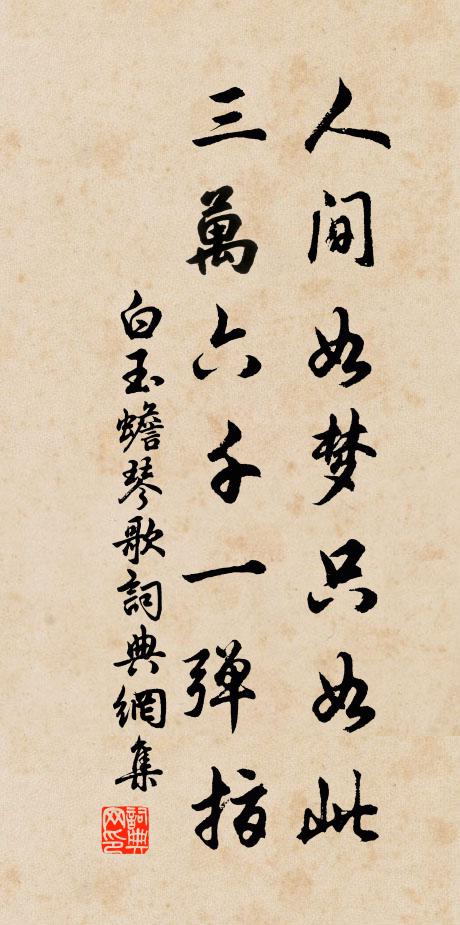 人间如梦只如此
三萬六千一弹指
白玉蟾琴歌詞典網集
詞典網印